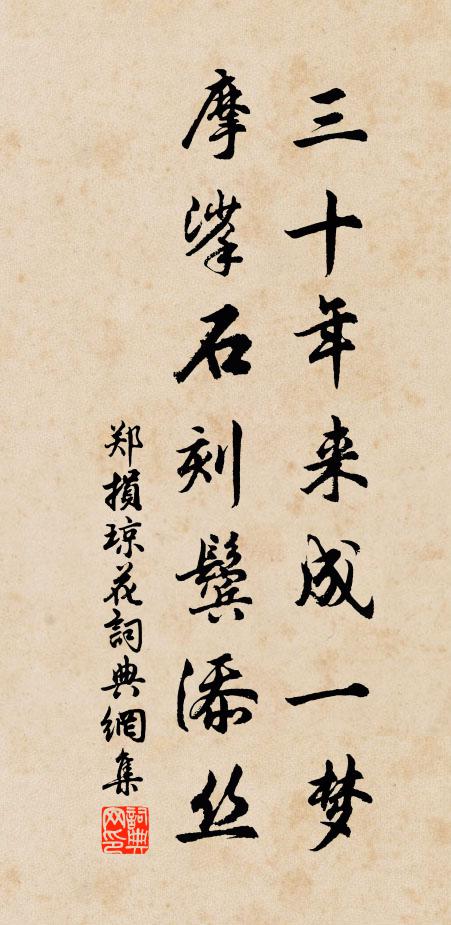 三十年来成一梦
摩挲石刻鬓添丝
郑損琼花詞典網集
詞典网印